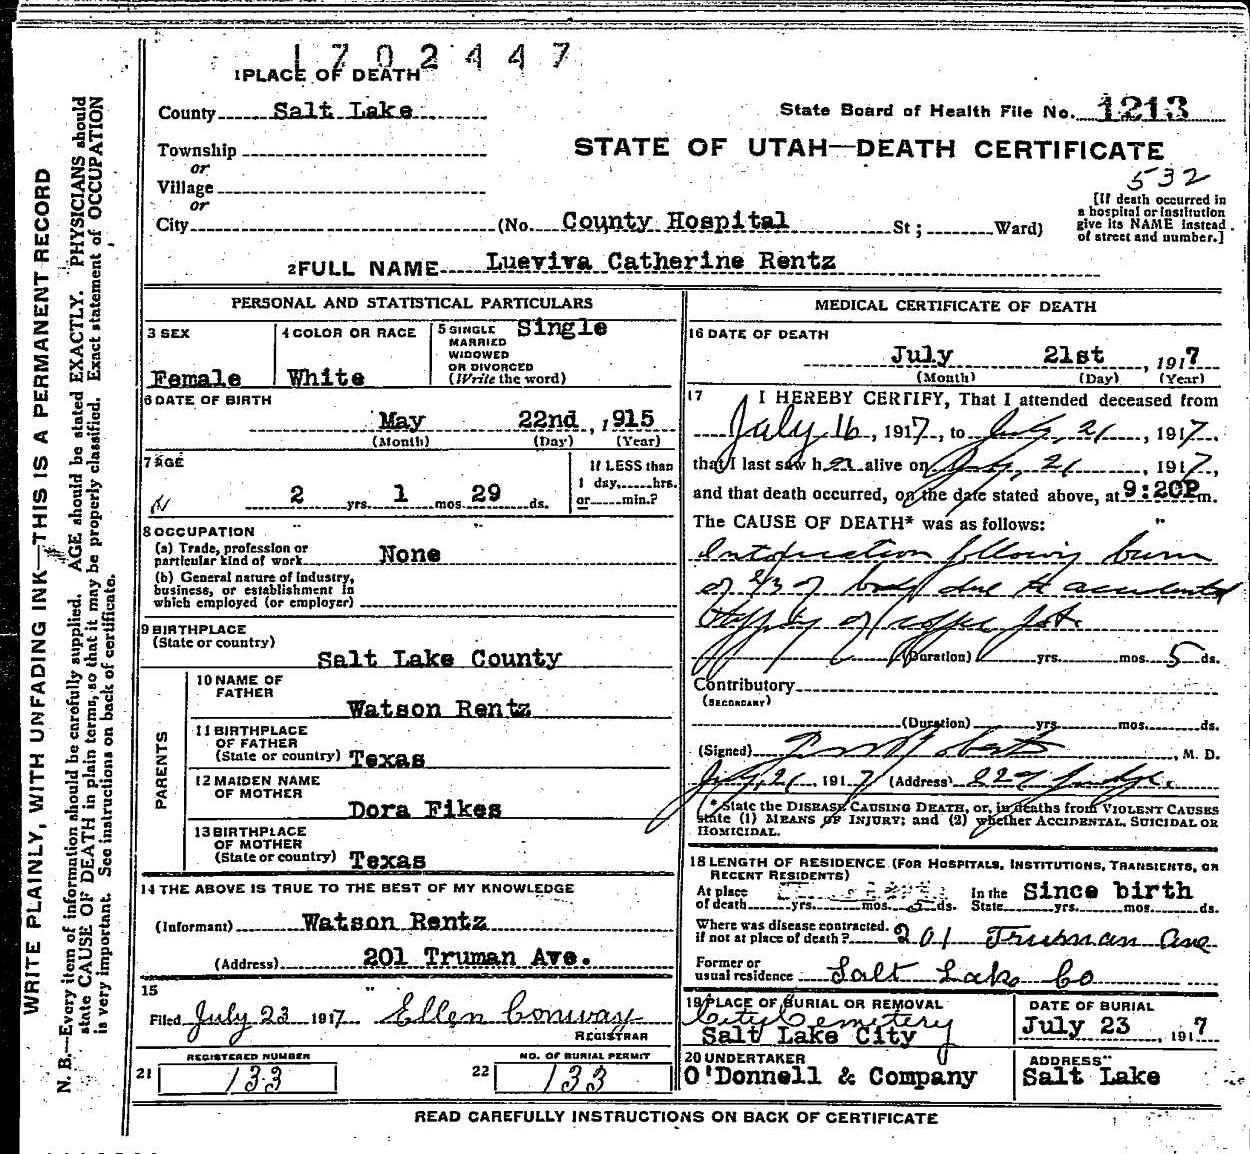 1702447
1 PLACE OF DEATH
County Salt Lake
State Board of Health File No. 1213
Township
or
STATE OF UTAH—DEATH CERTIFICATE
Village
532
or
City (No. County Hospital St; Ward)
[If death occurred in
a hospital or institution
give its NAME instead
of street and number.]
2 FULL NAME Lueviva Catherine Rentz
PERSONAL AND STATISTICAL PARTICULARS
3 SEX
Female
4 COLOR OR RACE
White
5 SINGLE Single
MARRIED
WIDOWED
OR DIVORCED
(Write the word)
6 DATE OF BIRTH
May 22nd, 1915
(Month) (Day) (Year)
7 AGE
2 yrs. 1 mos. 29 ds.
If LESS than
1 day, hrs.
or min.?
8 OCCUPATION
(a) Trade, profession or
particular kind of work None
(b) General nature of industry,
business, or establishment in
which employed (or employer)
9 BIRTHPLACE
(State or country)
Salt Lake County
PARENTS
10 NAME OF
FATHER
Watson Rentz
11 BIRTHPLACE
OF FATHER
(State or country) Texas
12 MAIDEN NAME
OF MOTHER
Dora Fikes
13 BIRTHPLACE
OF MOTHER
(State or country) Texas
14 THE ABOVE IS TRUE TO THE BEST OF MY KNOWLEDGE
(Informant) Watson Rentz
(Address) 201 Truman Ave.
15
Filed July 23 1917 Ellen Conway
REGISTRAR
REGISTERED NUMBER
21 133
NO. OF BURIAL PERMIT
22 133
MEDICAL CERTIFICATE OF DEATH
16 DATE OF DEATH
July 21st, 1917
(Month) (Day) (Year)
17 I HEREBY CERTIFY, That I attended deceased from
July 16, 1917, to July, 21, 1917.
that I last saw h er alive on July, 21, 1917,
and that death occurred, on the date stated above, at 9:20P m.
The CAUSE OF DEATH* was as follows:
Intoxication following burn
of 2/3 of body due to accidental
of coffee pot.
(Duration) yrs. mos. 5 ds.
Contributory
(SECONDARY)
(Duration) yrs. mos. ds.
(Signed) Roberts, M. D.
July, 21, 1917 (Address) 229 Judge.
* State the DISEASE CAUSING DEATH, or, in deaths from VIOLENT CAUSES
state (1) MEANS OF INJURY; and (2) whether ACCIDENTAL, SUICIDAL OR
HOMICIDAL.
18 LENGTH OF RESIDENCE (FOR HOSPITALS, INSTITUTIONS, TRANSIENTS, OR
RECENT RESIDENTS)
At place
of death yrs. mos. 5 ds.
In the Since birth
State yrs. mos. ds.
Where was disease contracted,
if not at place of death? 201 Truman Ave
Former or
usual residence Salt Lake Co
19 PLACE OF BURIAL OR REMOVAL
City Cemetery
Salt Lake City
DATE OF BURIAL
July 23, 1917
20 UNDERTAKER
O'Donnell & Company
ADDRESS
Salt Lake
READ CAREFULLY INSTRUCTIONS ON BACK OF CERTIFICATE
WRITE PLAINLY, WITH UNFADING INK—THIS IS A PERMANENT RECORD
N. B.—Every item of information should be carefully supplied. AGE should be stated EXACTLY. PHYSICIANS should
state CAUSE OF DEATH in plain terms, so that it may be properly classified. Exact statement of OCCUPATION
is very important. See instructions on back of certificate.